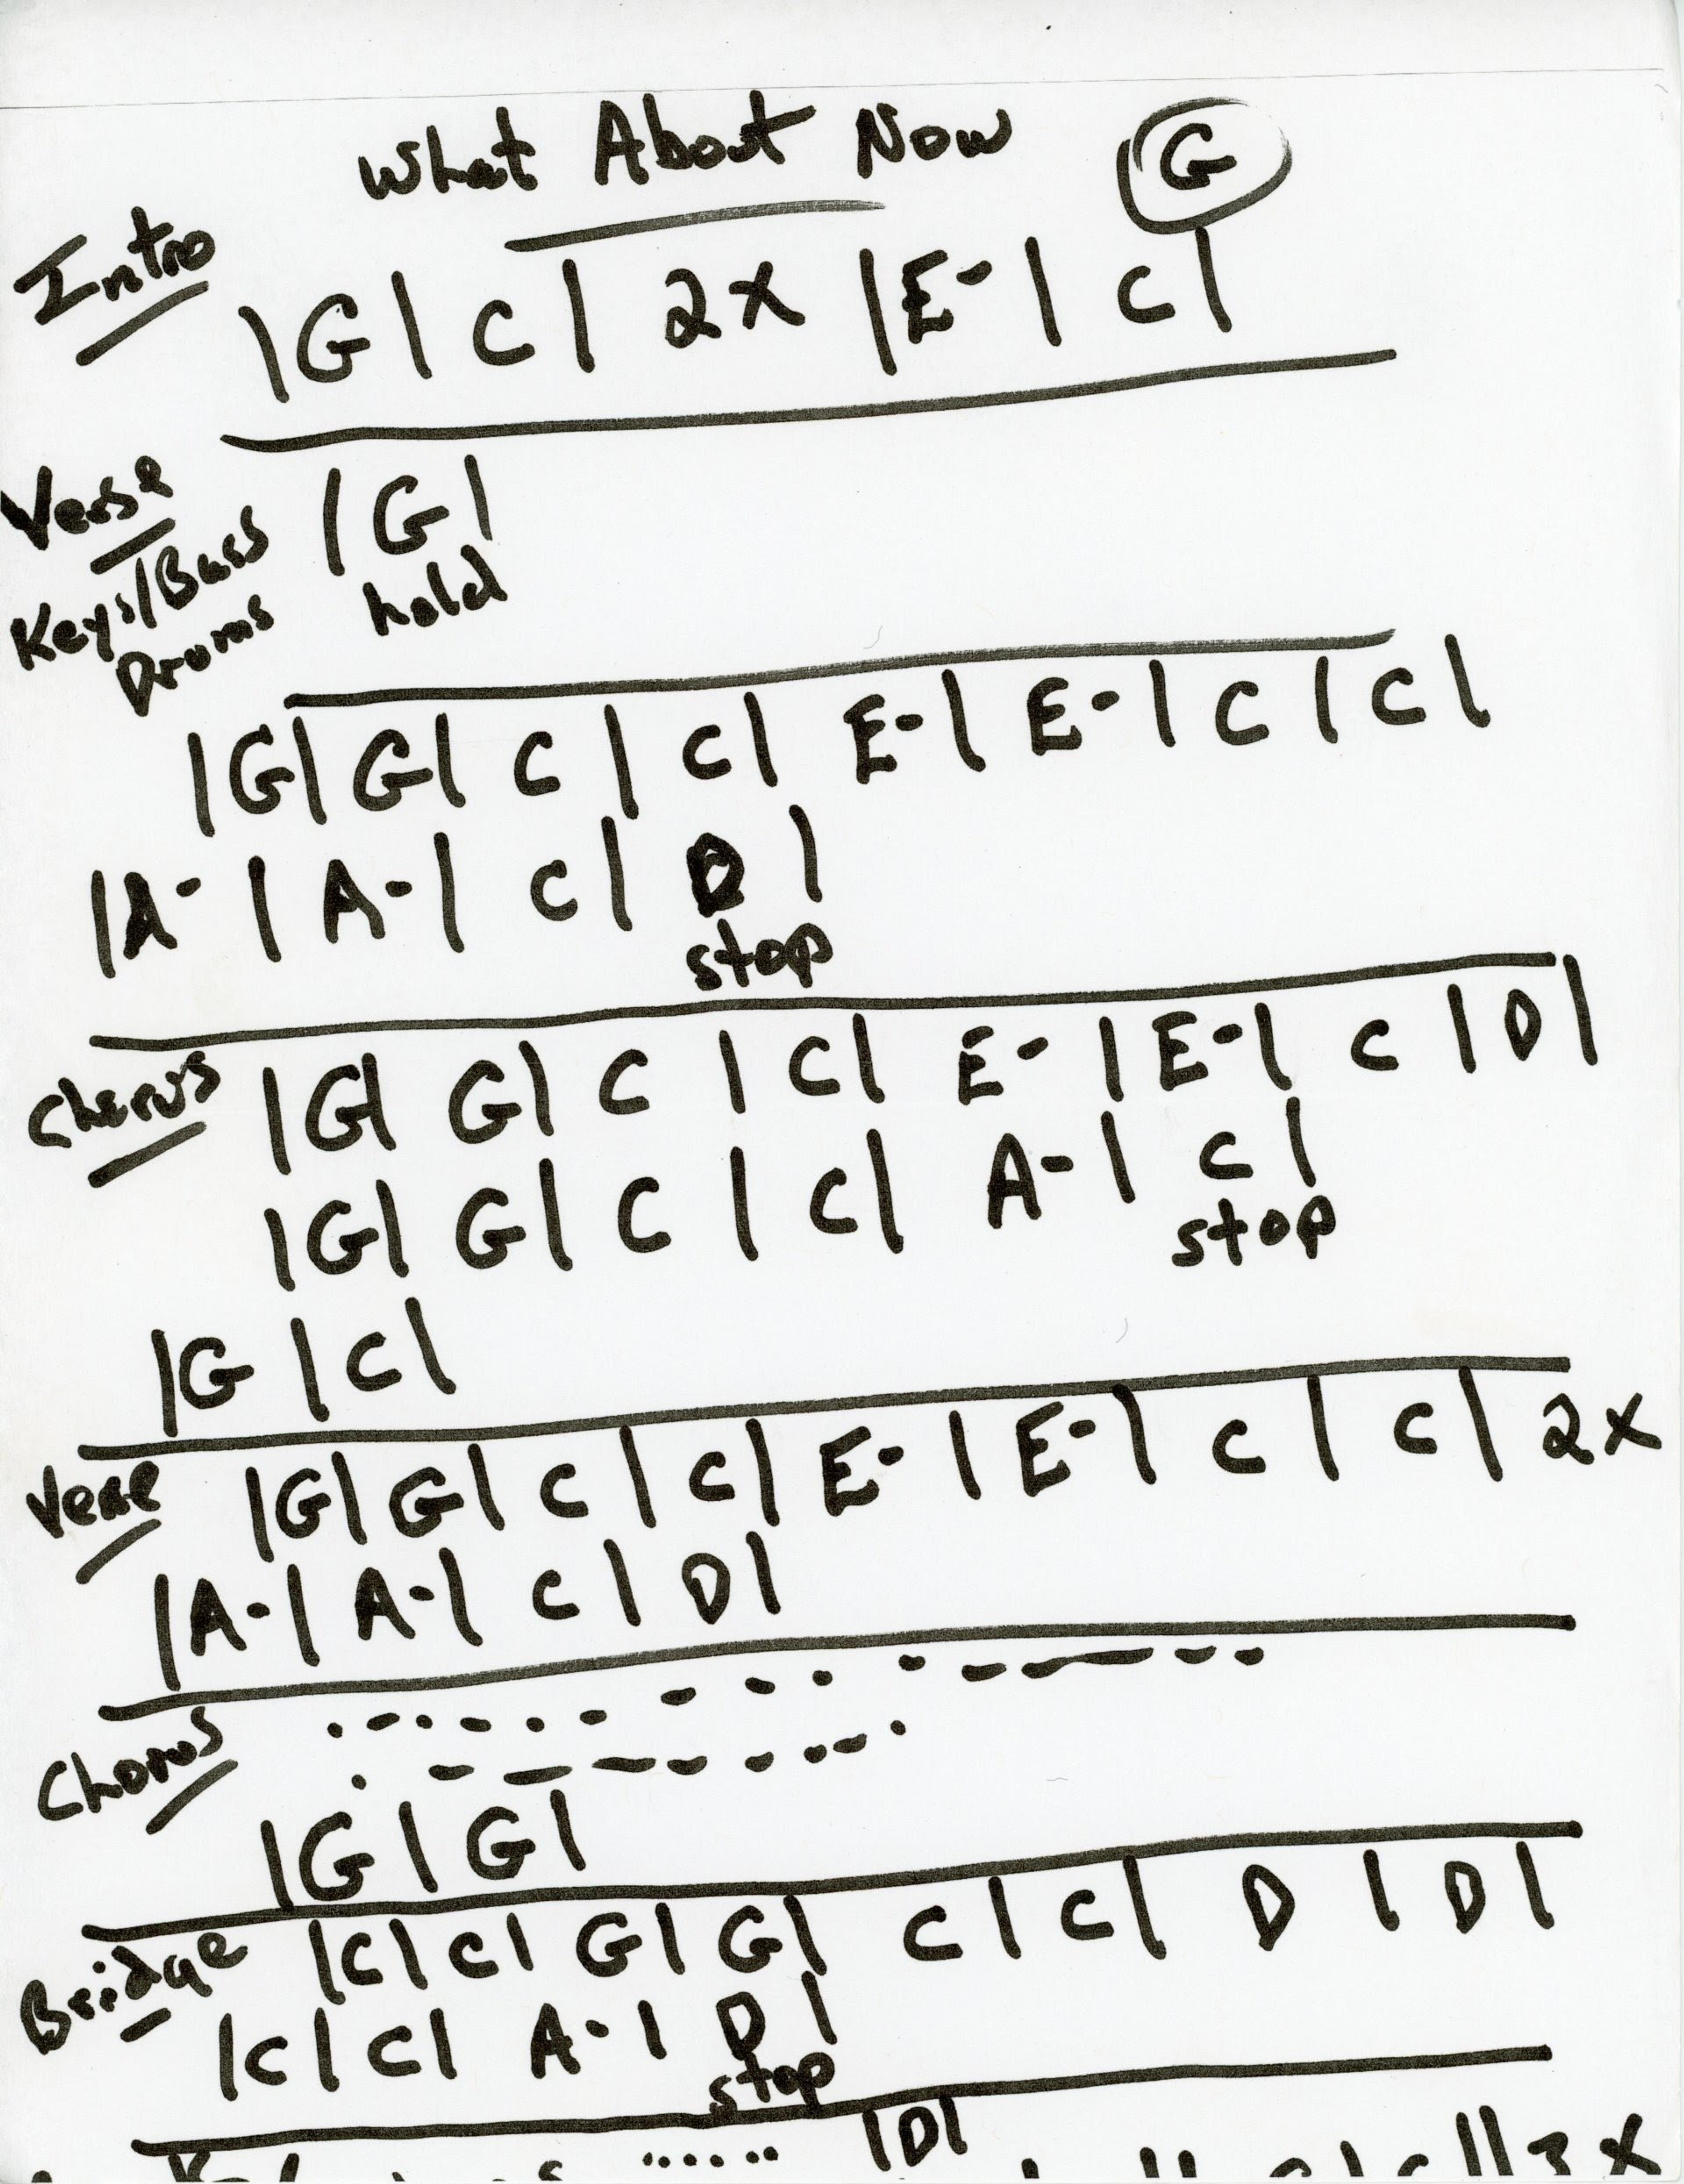 What About Now G
Intro |G| C| 2x |E-| C|
Verse |G|
Keys/Bass hold
Drums
|G| G| C | C| E-| E-| C | C|
|A- | A-| C| D |
stop
Chorus |G| G| C | C| E- | E-| C | D|
|G| G| C | C| A-| C |
stop
|G | C|
Verse |G| G| C | C| E- | E-| C | C| 2x
|A-| A-| C | D|
Chorus
|G | G|
Bridge |C| C| G| G| C | C| D | D|
|C| C| A-| D |
stop
|D|